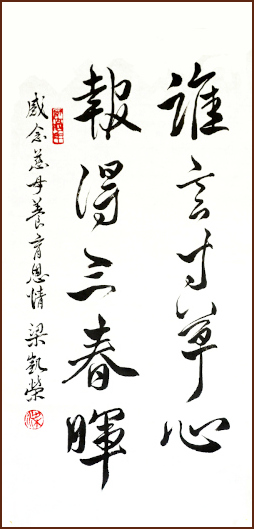 誰言寸草心
報得三春暉
感念慈母養育恩情 梁凱榮